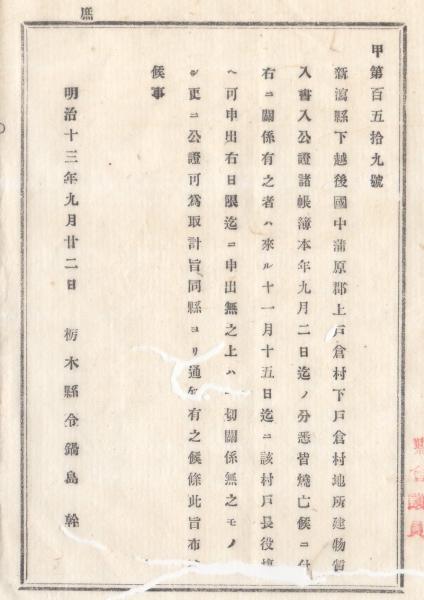 庶
甲第百五拾九號
新瀉縣下越後國中蒲原郡上戸倉村下戸倉村地所建物質
入書入公證諸帳簿本年九月二日迄ノ分悉皆燒亡候ニ付
右ニ關係有之者ハ來ル十一月十五日迄ニ該村戸長役塲
ヘ可申出右日限迄ニ申出無之上ハ一切關係無之モノ
更ニ公證可爲取計旨同縣ヨリ通知有之候條此旨布
候事
明治十三年九月廿二日 栃木縣令鍋島幹
縣會議員